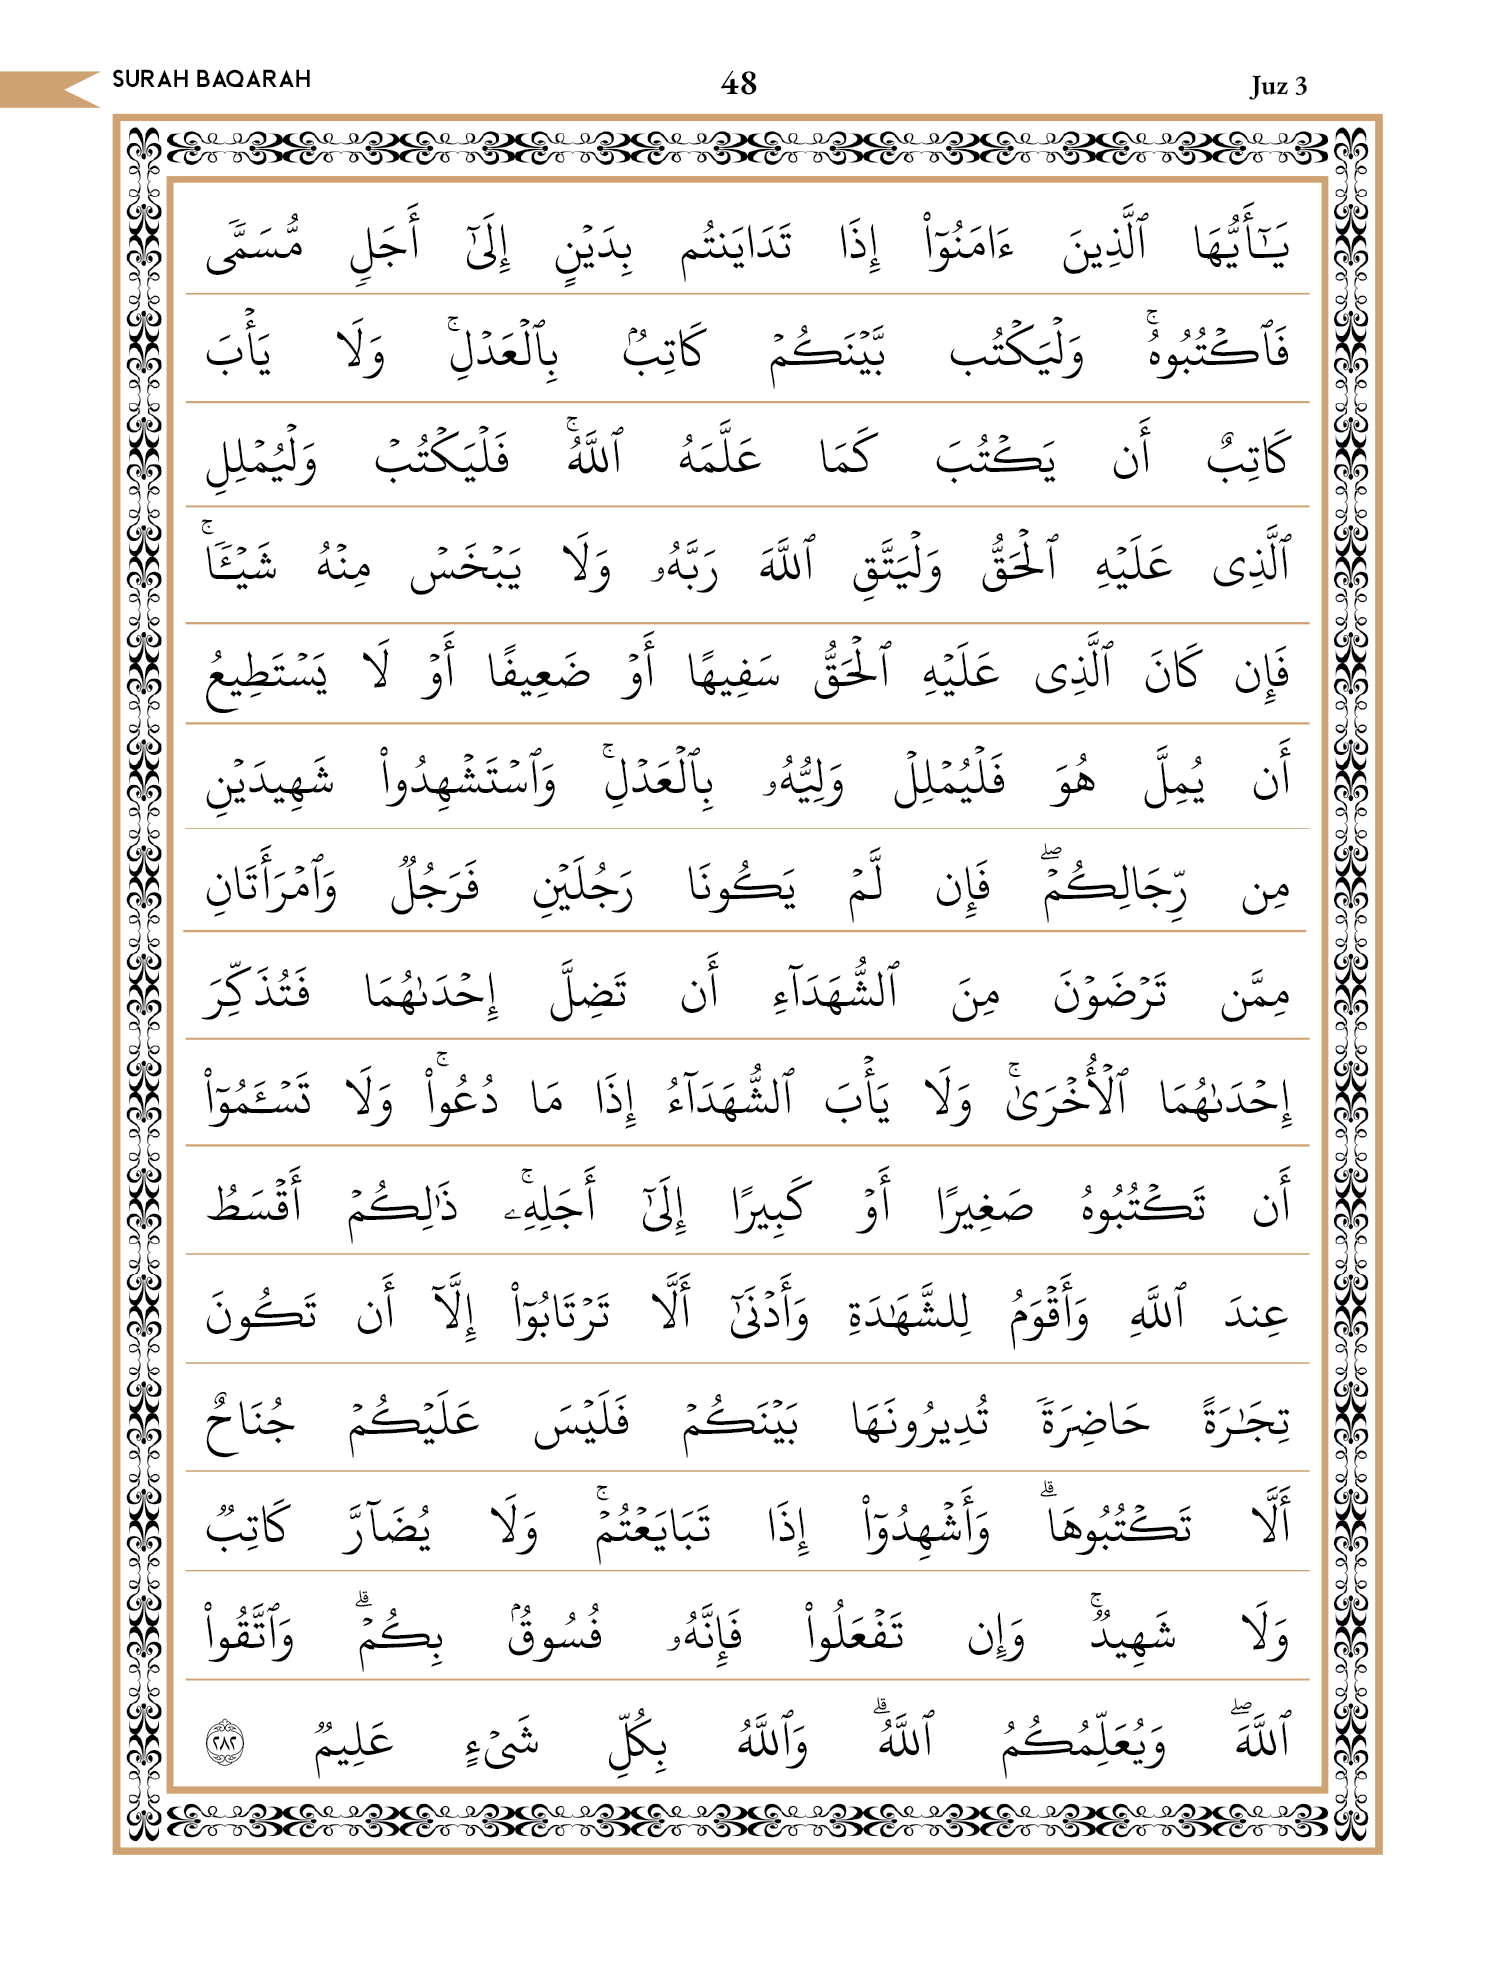 SURAH BAQARAH 48 Juz 3
يَـٰٓأَيُّهَا ٱلَّذِينَ ءَامَنُوٓا۟ إِذَا تَدَايَنتُم بِدَيْنٍ إِلَىٰٓ أَجَلٍ مُّسَمًّى
فَٱكْتُبُوهُ ۚ وَلْيَكْتُب بَّيْنَكُمْ كَاتِبٌۢ بِٱلْعَدْلِ ۚ وَلَا يَأْبَ
كَاتِبٌ أَن يَكْتُبَ كَمَا عَلَّمَهُ ٱللَّهُ ۚ فَلْيَكْتُبْ وَلْيُمْلِلِ
ٱلَّذِى عَلَيْهِ ٱلْحَقُّ وَلْيَتَّقِ ٱللَّهَ رَبَّهُۥ وَلَا يَبْخَسْ مِنْهُ شَيْـًٔا ۚ
فَإِن كَانَ ٱلَّذِى عَلَيْهِ ٱلْحَقُّ سَفِيهًا أَوْ ضَعِيفًا أَوْ لَا يَسْتَطِيعُ
أَن يُمِلَّ هُوَ فَلْيُمْلِلْ وَلِيُّهُۥ بِٱلْعَدْلِ ۚ وَٱسْتَشْهِدُوا۟ شَهِيدَيْنِ
مِن رِّجَالِكُمْ ۖ فَإِن لَّمْ يَكُونَا رَجُلَيْنِ فَرَجُلٌ وَٱمْرَأَتَانِ
مِمَّن تَرْضَوْنَ مِنَ ٱلشُّهَدَآءِ أَن تَضِلَّ إِحْدَىٰهُمَا فَتُذَكِّرَ
إِحْدَىٰهُمَا ٱلْأُخْرَىٰ ۚ وَلَا يَأْبَ ٱلشُّهَدَآءُ إِذَا مَا دُعُوا۟ ۚ وَلَا تَسْـَٔمُوٓا۟
أَن تَكْتُبُوهُ صَغِيرًا أَوْ كَبِيرًا إِلَىٰٓ أَجَلِهِۦ ۚ ذَٰلِكُمْ أَقْسَطُ
عِندَ ٱللَّهِ وَأَقْوَمُ لِلشَّهَـٰدَةِ وَأَدْنَىٰٓ أَلَّا تَرْتَابُوٓا۟ إِلَّآ أَن تَكُونَ
تِجَـٰرَةً حَاضِرَةً تُدِيرُونَهَا بَيْنَكُمْ فَلَيْسَ عَلَيْكُمْ جُنَاحٌ
أَلَّا تَكْتُبُوهَا ۗ وَأَشْهِدُوٓا۟ إِذَا تَبَايَعْتُمْ ۚ وَلَا يُضَآرَّ كَاتِبٌ
وَلَا شَهِيدٌ ۚ وَإِن تَفْعَلُوا۟ فَإِنَّهُۥ فُسُوقٌۢ بِكُمْ ۗ وَٱتَّقُوا۟
ٱللَّهَ ۖ وَيُعَلِّمُكُمُ ٱللَّهُ ۗ وَٱللَّهُ بِكُلِّ شَىْءٍ عَلِيمٌ ٢٨٢